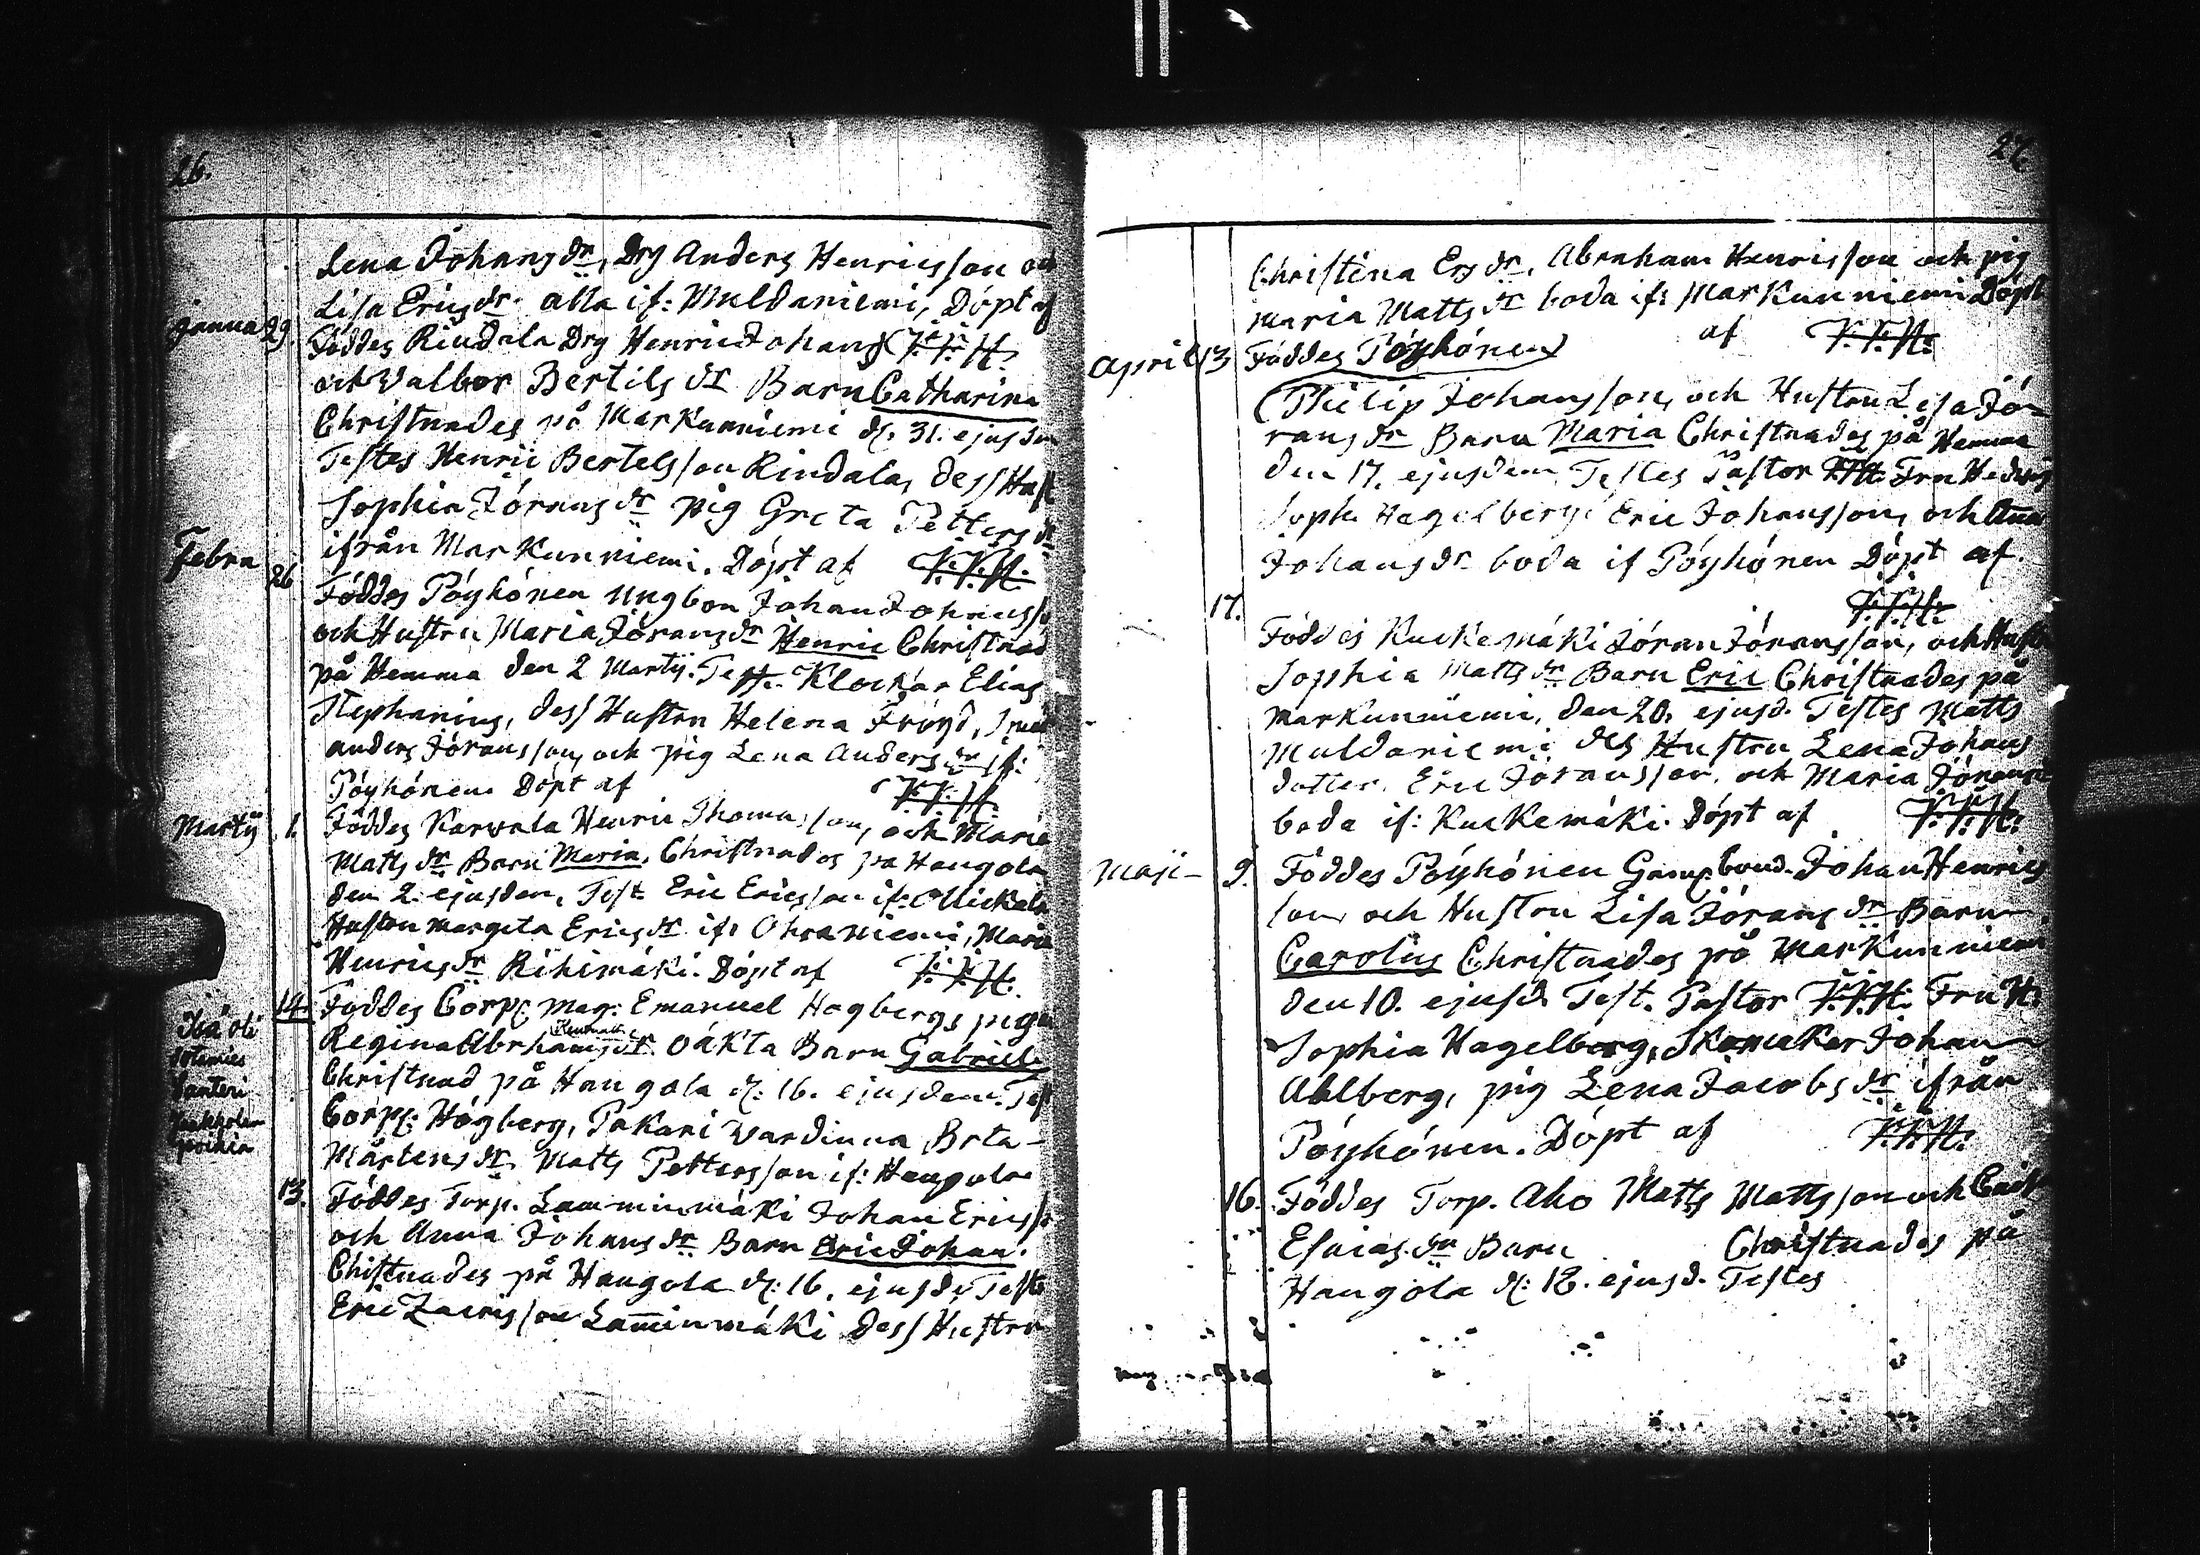 26.
Lena Johansdr, Drg Anders Henricsson och
Lisa Ericsdr. alla if: Muldaniemi, Döpt af
Janua 29. Föddes Rindala Drg Henric Johans F.F.H.
och Walbor Bertilsdr Barn Catharina
Christnades på Markunniemi d. 31. ejusdem
Testes Henric Bertelsson Rindala, dess Hust
Sophia Jöransdr pig Greta Pettersdr
ifrån Markunniemi. Döpt af F.F.H.
Febru 26 Föddes Pöyhönen Ungbon Johan Johansso
och Hustru Maria Jöransdr Henric Christnad
på Hemma den 2 Martij. Test. Klockar Elias
Stephanius, dess Hustru Helena Fröyd,
anders Jöransson, och pig Lena Andersdr if:
Pöyhönen Döpt af F.F.H.
Martij 1. Föddes Karvala Henric Thomasson, och Maria
Mattsdr Barn Maria, Christnades på Hangola
den 2. ejusdem, Test. Eric Ericsson if: Mickels
Hustru Margeta Ericsdr if: Ohraniemi, Maria
Henricsdr Rihimäki. Döpt af F.F.H.
14. Föddes Corpl: Mag: Emanuel Hagbergs pigu
Regina Abrhamsdr. oäkta Barn Gabriel
Christnad på Hangola d: 16. ejusdem. Test
Corpl: Högberg, Pakari Wardinna Brta
Mårtensdr. Matts Pettersson if: Hangola
Isä oli
sotamies
Santeri
poikia
13. Föddes Torp. Lamminmäki Johan Ericsso
och Anna Johansdr Barn Eric Johan.
Chistnades på Hangola d: 16. ejusd. Teste
Eric Zacrisson Lam̄inmäki dess Hustru
27.
Christina Ersdr, Abraham Henrisson och pig
Maria Mattsdr boda if: Markunniemi Döpt
af F.F.H.
April 13 Föddes Pöyhönen
Philip Johansson, och Hustru Lisa Jö-
ransdr Barn Maria Christnades på Hemma
den 17. ejusdem Testes Pastor F.F.H. Fru Hedvig
Soph. Hagelberg, Eric Johansson, och Anna
Johansdr boda if Pöyhönen Döpt af.
F.F.H.
17.
Föddes Kuckemäki Jöran Jöransson, och Hust
Sophia Mattsdr Barn Eric Christnades på
Markunniemi, den 20. ejusd. Testes Matts
Muldaniemi des Hustru Lena Johans
dotter, Eric Jöransson, och Maria Jörans
boda if: Kuckemäki. Döpt af F.F.H.
Maji 9. Föddes Pöyhönen Gamp bond. Johan Henrics
son och Hustru Lisa Jöransdr Barn
Carolus Christnades på Markunniemi
den 10. ejusd. Test. Pastor F.F.H. Fru H.
Sophia Hagelberg, Skomaker Johan
Ahlberg, pig Lena Jacobsdr ifrån
Pöyhönen. Döpt af F.F.H.
16. Föddes Torp. Aho Matts Mattsson och
Esaiasdr Barn Christnades på
Hangola d: 18. ejusd. Testes